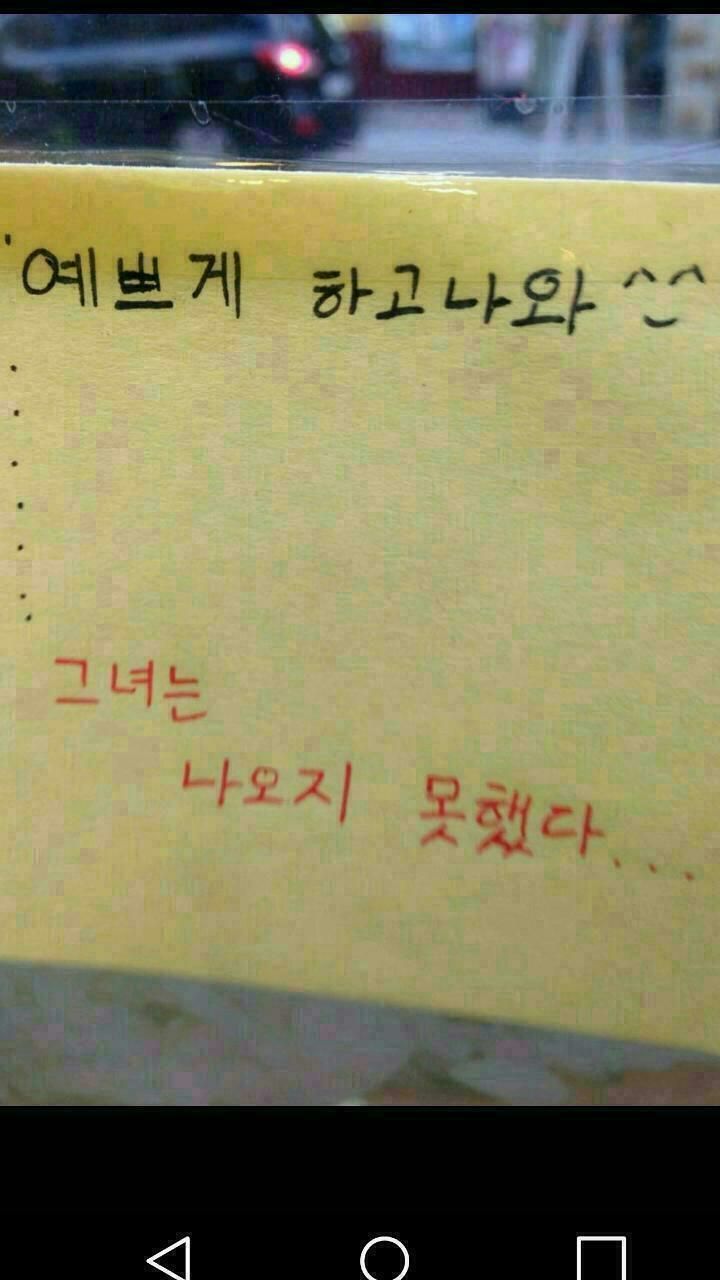 '예쁘게 하고나와 ^‿^
.
.
.
.
.
.
.
그녀는
나오지 못했다...